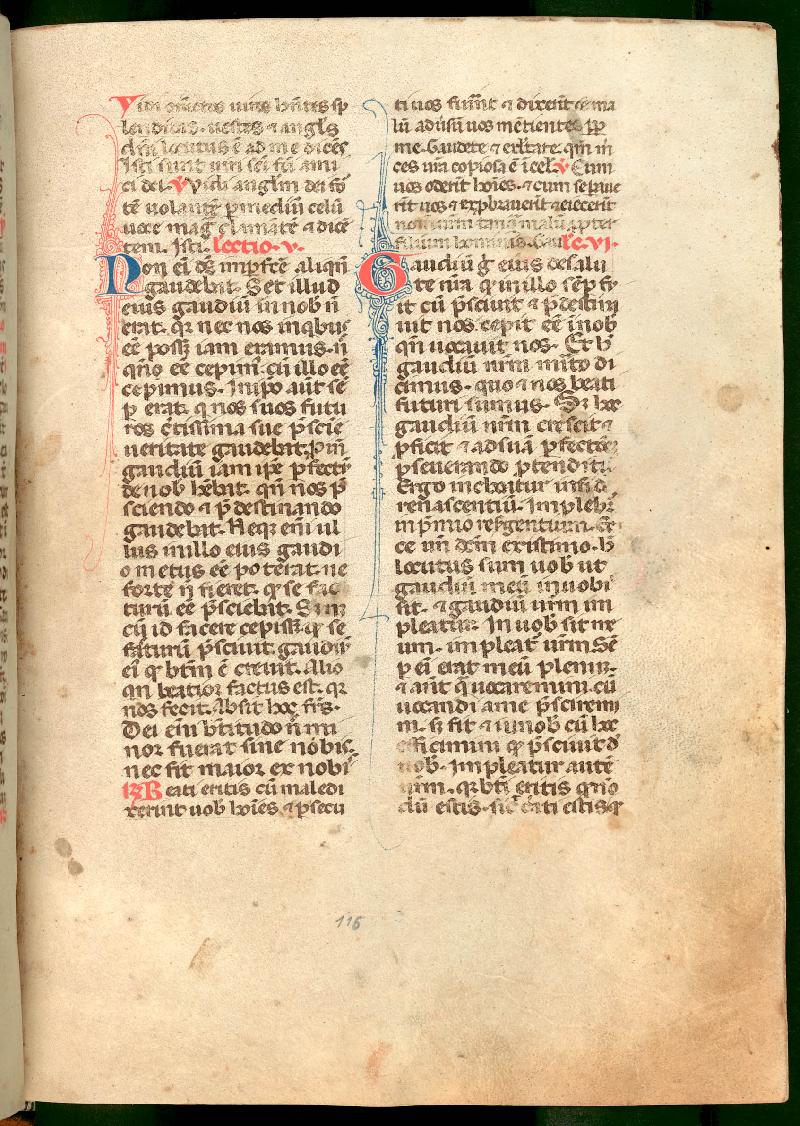 Vidi om̄etes uiros hn̄tes sp
lendidas uestes ⁊ angl's
dn̄i locutus ē ad me dicēs
Isti sunt uiri sc̄i fc̄i ami
ci dei. V Vidi angl'm dei fo
tē uolantē p̄ mediū celū
uoce mag̃ clamātē ⁊ dicē
tem. Isti. lectio. v.
Non ei d̄s imp̄fcē aliqn̄
gaudebit. Set illud
eius gaudiū in nob n̄
erat. qr nec nos in qbus
eē poss; iam eramus. n̄
qn̄o eē cepim̄. cū illo eē
cepimus. In ip̄o aūt sē
p erat. q nos suos futu
ros c̄tissima sue p̄scie
ueritate gaudebit.
gaudiū iam ip̄e p̄fectū
de nob hēbit. qn̄ nos p̄
sciendo ⁊ p̄destinando
gaudebit. Neq; eni ul
lus in illo eius gaudi
o metus eē poterat. ne
forte n̄ fieret. q se fac
turū eē p̄sciebit. S;
cū id facere cepiss; q se
fcāturū p̄sciuit. gaudiū
ei q btm̄ ē creuit. Alio
qn beatior factus est. qr
nos fecit. Absit hoc fr̄s.
Dei eni btitudo n̄ mi
nor fuerat sine nobis.
nec fit maior ex nobis
R Beati eritis cū maledi
xerint uob hoīes ⁊ p̄secu
ti uos fuīnt ⁊ dixerīt oē ma
lū adūsū uos mētientes p̄p̄
me. Gaudete ⁊ exltate. qm̄ m̄
ces ura copiosa ē ī cel. V Cum
uos oderīt hoīes. ⁊ cum sepaue
rīt uos ⁊ exp̄brauerīt ⁊ eiecerīt
nomen urm̄ tanq̄ malū ppter
filium hominis. Gau. le. vi.
Gaudiū g̃ eius de salu
te nr̄a q in illo sēp fu
it cū p̄sciuit ⁊ p̄destin
uit nos. cepit eē ī nob
qn̄ uocauit nos. Et h̄
gaudiū nr̄m mito di
cimus. quo ⁊ nos beati
futuri sumus. S; hoc
gaudiū nr̄m crescit ⁊
pficit ⁊ ad suā p̄fectōe
pseuerando p̄tendit.
Ergo inchoatur in fid
renascentiū. Implebit
in p̄mio resgentium. Ec
ce un dcm̄ existimo. h̄
locutus sum uob ut
gaudiū meū in uobis
sit. ⁊ gaudiū ur̄m im
pleatur. In uob sit me
um. impleat ur̄m Sē
p ei erat meū plenū.
⁊ anti q̄ uocaremini. cū
uocandi a me p̄sciremi
ni. s; fit ⁊ in uob cū hoc
efficimini q p̄sciui d
uob. Impleatur autē
ur̄m. qr bti eritis qn̄o
dū estis. sic c̄ati estis q
116